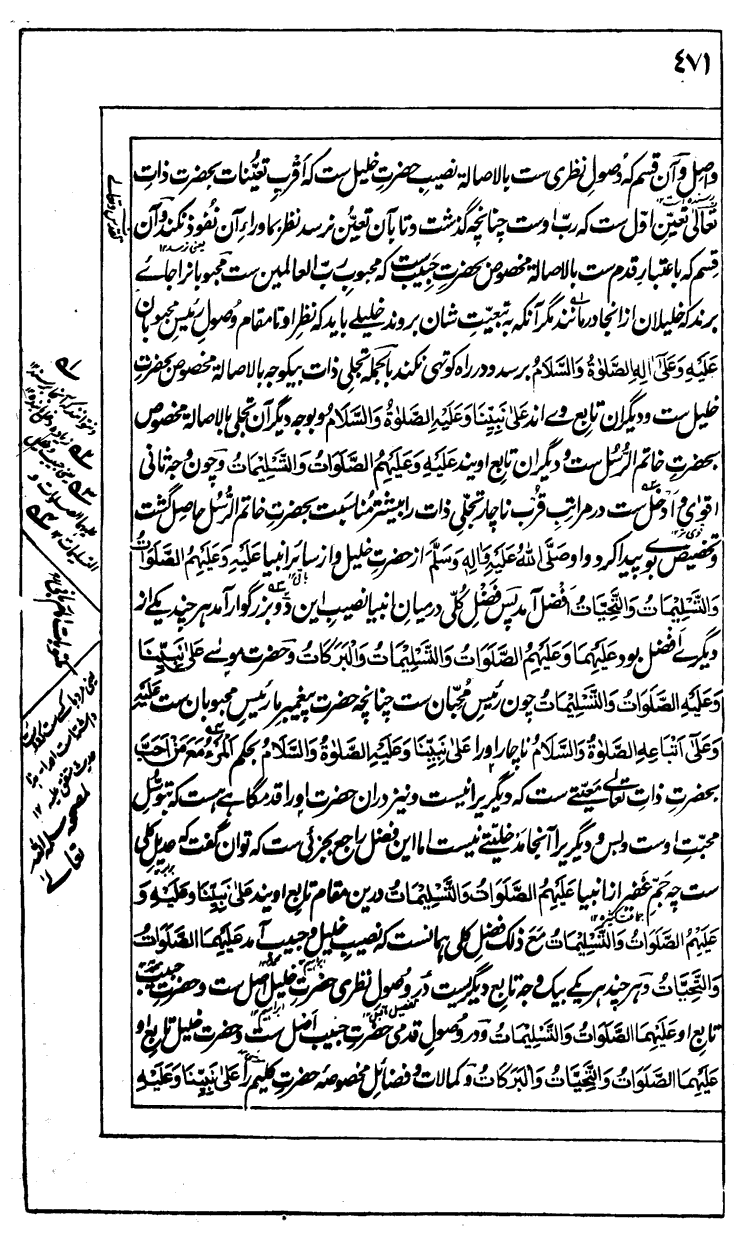 ٤٧١
واصل و آن قسم که وصول نظری ست بالاصالة نصیب حضرت خلیل ست که أقرب تعینات بحضرت ذات
تعالی تعین اول ست که رب اوست چنانچه گذشت و تا بآن تعین نرسد نظر بماوراء آن نفوذ نکند و آن
قسم که باعتبار قدم ست بالاصالة مخصوص بحضرت حبیب ست که محبوب رب العالمین ست محبوبانرا جائے
برند که خلیلان از انجا درمانند مگر آنکه بتبعیت شان بروند خلیلے باید که نظر او تا مقام وصول رئیس محبوبان
عَلَیْهِ وَعَلٰی اٰلِهِ الصَّلٰوةُ وَالسَّلَامُ برسد و در راه کوتهی نکند بالجمله تجلی ذات بیکوجه بالاصالة مخصوص بحضرت
خلیل ست و دیگران تابع وے اند عَلٰی نَبِیِّنَا وَعَلَیْهِ الصَّلٰوةُ وَالسَّلَامُ و بوجه دیگر آن تجلی بالاصالة مخصوص
بحضرت خاتم الرُّسُل ست و دیگران تابع اویند عَلَیْهِ وَعَلَیْهِمُ الصَّلَوَاتُ وَالتَّسْلِیْمَاتُ و چون وجه ثانی
اقوی و ادخل ست در مراتب قرب ناچار تجلی ذات را بیشتر مناسبت بحضرت خاتم الرُّسُل حاصل گشت
و تخصیصے بوے پیدا کرد و او صَلَّی اللهُ عَلَیْهِ وَاٰلِهِ وَسَلَّمَ از حضرت خلیل و از سائر انبیا عَلَیْهِ وَعَلَیْهِمُ الصَّلَوَاتُ
وَالتَّسْلِیْمَاتُ وَالتَّحِیَّاتُ افضل آمد پس فضل کلی درمیان انبیا نصیب این دو بزرگوار آمد هر چند یکے از
دیگرے افضل بود عَلَیْهِمَا وَعَلَیْهِمُ الصَّلَوَاتُ وَالتَّسْلِیْمَاتُ وَالْبَرَکَاتُ و حضرت موسے عَلٰی نَبِیِّنَا
وَعَلَیْهِ الصَّلَوَاتُ وَالتَّسْلِیْمَاتُ چون رئیس محبان ست چنانچه حضرت پیغمبر ما رئیس محبوبان ست عَلَیْهِ
وَعَلٰی اَتْبَاعِهِ الصَّلٰوةُ وَالسَّلَامُ ناچار او را عَلٰی نَبِیِّنَا وَعَلَیْهِ الصَّلٰوةُ وَالسَّلَامُ بحکم اَلْمَرْءُ مَعَ مَنْ اَحَبَّ
بحضرت ذات تعالے معیتے ست که دیگریرا نیست و نیز دران حضرت او را قدمگاهے هست که بتوسل
محبت اوست و بس و دیگریرا آنجا مدخلیتے نیست اما این فضل راجع بجزئی ست که توان گفت که عدیل کلی
ست چه جم غفیر از انبیا عَلَیْهِمُ الصَّلَوَاتُ وَالتَّسْلِیْمَاتُ درین مقام تابع اویند عَلٰی نَبِیِّنَا وَعَلَیْهِ وَ
عَلَیْهِمُ الصَّلَوَاتُ وَالتَّسْلِیْمَاتُ مَعَ ذٰلِکَ فضل کلی همانست که نصیب خلیل و حبیب آمد عَلَیْهِمَا الصَّلَوَاتُ
وَالتَّحِیَّاتُ و هر چند هر یکے بیک وجه تابع دیگریست در وصول نظری حضرت خلیل اصل ست و حضرت حبیب
تابع او عَلَیْهِمَا الصَّلَوَاتُ وَالتَّسْلِیْمَاتُ و در وصول قدمی حضرت حبیب اصل ست و حضرت خلیل تابع او
عَلَیْهِمَا الصَّلَوَاتُ وَالتَّحِیَّاتُ وَالْبَرَکَاتُ و کمالات و فضائل مخصوصه حضرت کلیم را عَلٰی نَبِیِّنَا وَعَلَیْهِ